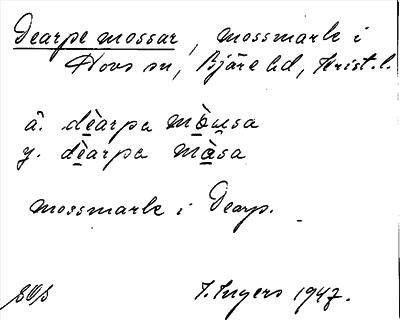 Dearpe mossar, mossmark i
Hovs sn, Bjäre hd, Krist. l.
ä. dèarpa mòu̯sa
y. dèarpa màsa
mossmark i Dearp.
I. Ingers 1947.